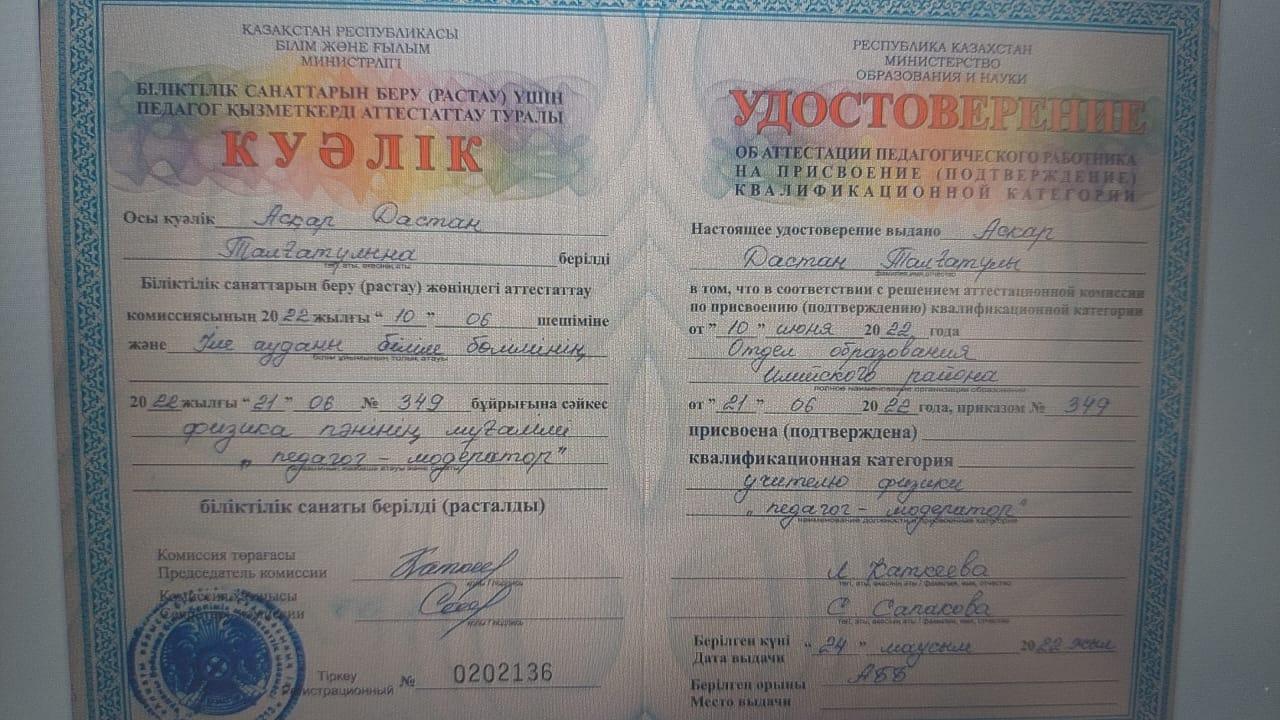 ҚАЗАҚСТАН РЕСПУБЛИКАСЫ
БІЛІМ ЖӘНЕ ҒЫЛЫМ
МИНИСТРЛІГІ
БІЛІКТІЛІК САНАТТАРЫН БЕРУ (РАСТАУ) ҮШІН
ПЕДАГОГ ҚЫЗМЕТКЕРДІ АТТЕСТАТТАУ ТУРАЛЫ
КУӘЛІК
Осы куәлік Асқар Дастан
Талғатұлына берілді
тегі, аты, әкесінің аты
Біліктілік санаттарын беру (растау) жөніндегі аттестаттау
комиссиясының 2022 жылғы "10" 06 шешіміне
және Іле ауданы білім бөлімінің
білім ұйымының толық атауы
2022 жылғы "21" 06 № 349 бұйрығына сәйкес
физика пәнінің мұғалімі
„педагог - модератор"
біліктілік санаты берілді (расталды)
Комиссия төрағасы
Председатель комиссии
қолы / подпись
қолы / подпись
Тіркеу
Регистрационный № 0202136
РЕСПУБЛИКА КАЗАХСТАН
МИНИСТЕРСТВО
ОБРАЗОВАНИЯ И НАУКИ
УДОСТОВЕРЕНИЕ
ОБ АТТЕСТАЦИИ ПЕДАГОГИЧЕСКОГО РАБОТНИКА
НА ПРИСВОЕНИЕ (ПОДТВЕРЖДЕНИЕ)
КВАЛИФИКАЦИОННОЙ КАТЕГОРИИ
Настоящее удостоверение выдано Асқар
Дастан Талғатұлы
фамилия, имя, отчество
в том, что в соответствии с решением аттестационной комиссии
по присвоению (подтверждению) квалификационной категории
от " 10 " июня 2022 года
Отдел образования
Илийского района
полное наименование организации образования
от " 21 " 06 2022 года, приказом № 349
присвоена (подтверждена)
квалификационная категория
учителю физики
„педагог - модератор"
наименование должности, присвоенная категория
Л Каткеева
тегі, аты, әкесінің аты / фамилия, имя, отчество
С. Сапакова
тегі, аты, әкесінің аты / фамилия, имя, отчество
Берілген күні
Дата выдачи " 24 " маусым 2022 жыл
Берілген орыны АББ
Место выдачи